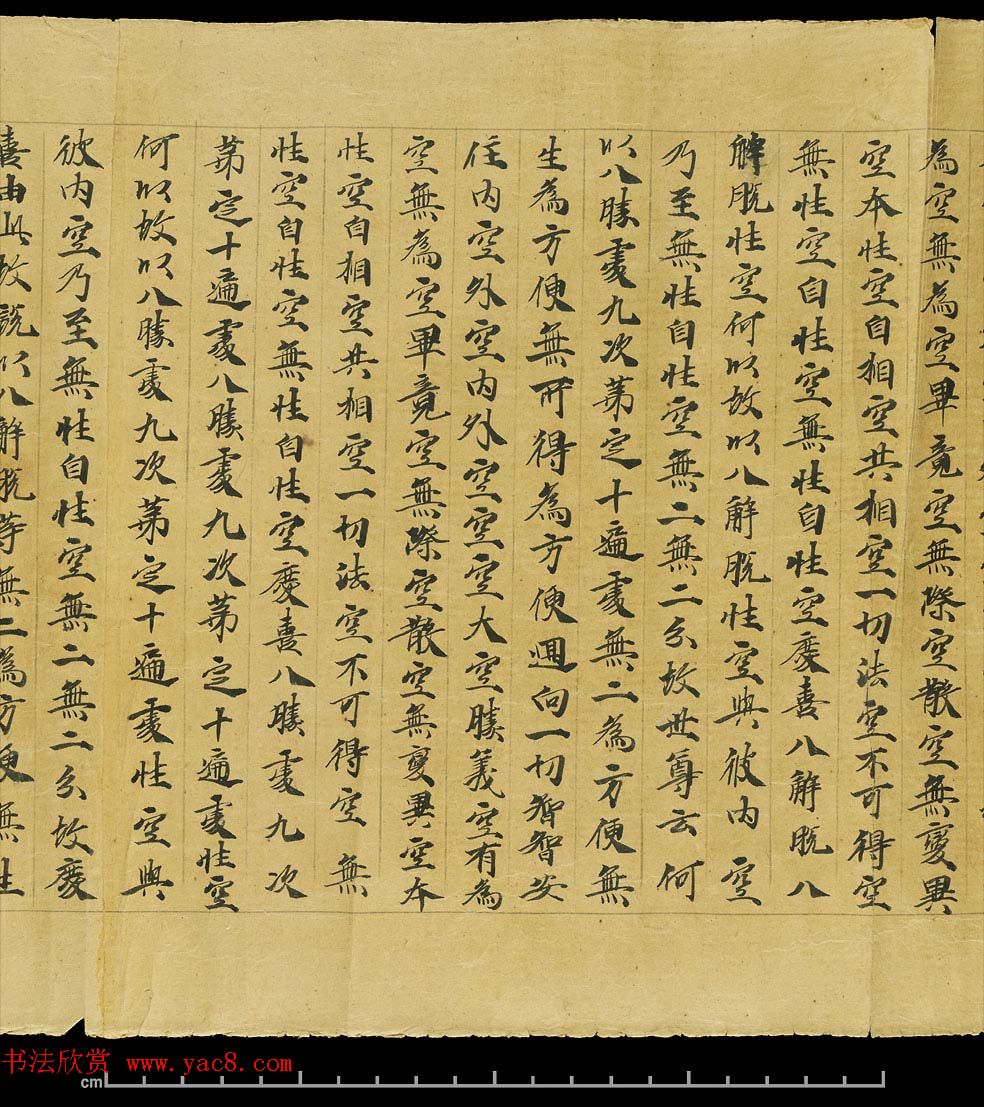 為空無為空畢竟空無際空散空無變異
空本性空自相空共相空一切法空不可得空
無性空自性空無性自性空慶喜八解脫八
解脫性空何以故以八解脫性空與彼内空
乃至無性自性空無二無二分故世尊云何
以八勝處九次第定十遍處無二為方便無
生為方便無所得為方便迴向一切智智安
住内空外空内外空空空大空勝義空有為
空無為空畢竟空無際空散空無變異空本
性空自相空共相空一切法空不可得空無
性空自性空無性自性空慶喜八勝處九次
第定十遍處八勝處九次第定十遍處性空
何以故以八勝處九次第定十遍處性空與
彼内空乃至無性自性空無二無二分故慶
喜由此故說以八解脫等無二為方便無生
书法欣赏 www.yac8.com
cm